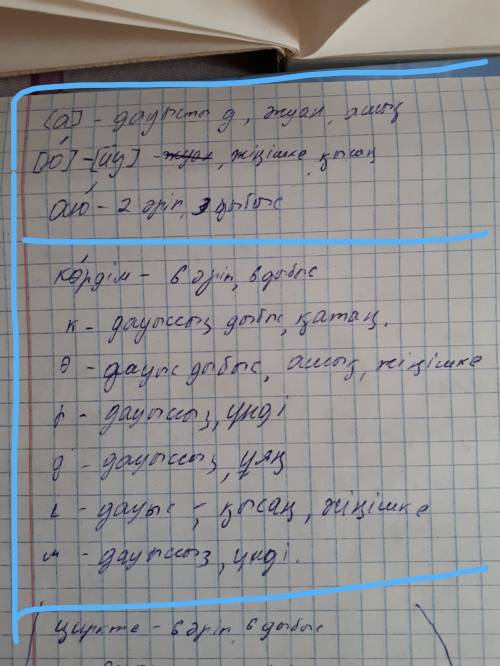 [а] - дауысты д, жуан, ашық
[Ю] - [йу] - жуан, жіңішке, қысаң
аю - 2 әріп, 3 дыбыс
көрдім - 6 әріп, 6 дыбыс
к - дауыссыз дыбыс, қатаң.
ө - дауыс дыбыс, ашық, жіңішке
р - дауыссыз, үнді
д - дауыссыз, ұяң
і - дауыс -, қысаң, жіңішке
м - дауыссыз, үнді.
циркте - 6 әріп, 6 дыбыс